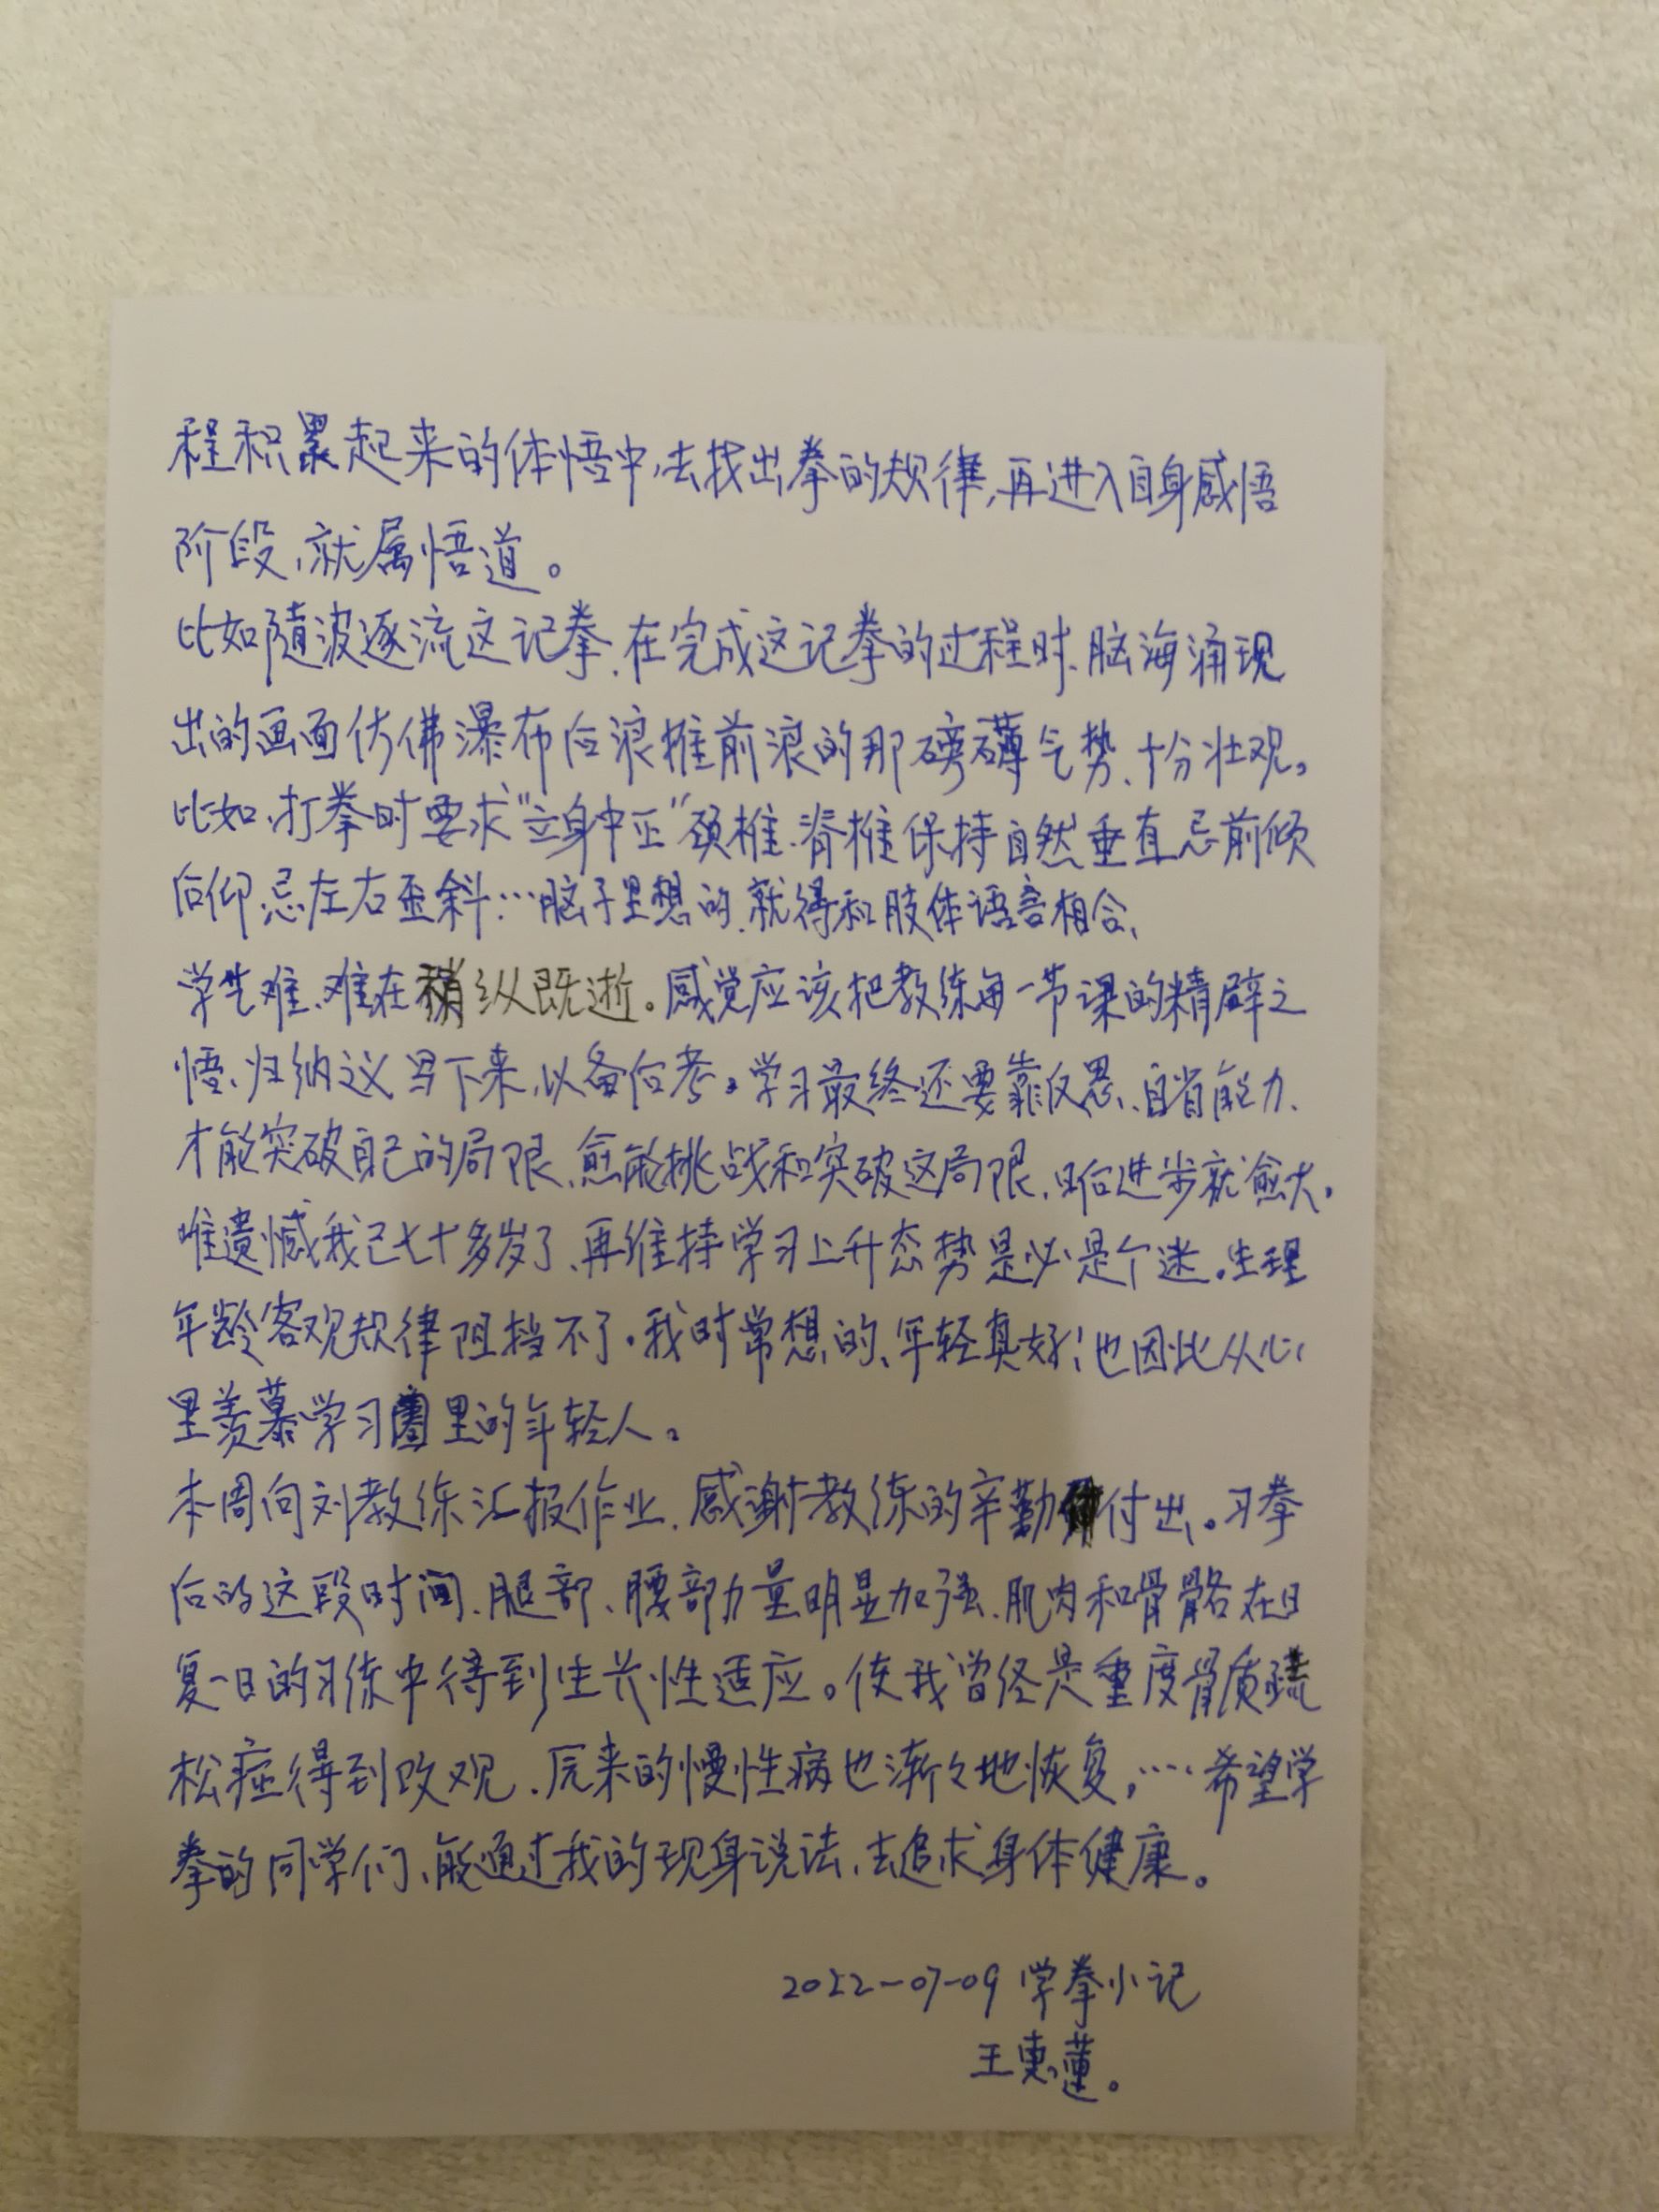 程积累起来的体悟中,去找出拳的规律,再进入自身感悟
阶段,就属悟道。
比如随波逐流这记拳.在完成这记拳的过程时.脑海涌现
出的画面仿佛瀑布后浪推前浪的那磅礴气势、十分壮观。
比如,打拳时要求"立身中正"颈椎.脊椎保持自然垂直忌前倾
后仰.忌左右歪斜…脑子里想的.就得和肢体语言相合、
学生难、难在稍纵既逝。感觉应该把教练每一节课的精辟之
悟、归纳这义写下来,以备后考。学习最终还要靠反思、自省能力、
才能突破自己的局限、愈能挑战和突破这局限、日后进步就愈大。
唯遗憾我已七十多岁了、再维持学习上升态势是必是个迷。生理
年龄客观规律阻挡不了。我时常想的、年轻真好!也因此从心
里羡慕学习圈里的年轻人。
本周向刘教练汇报作业、感谢教练的辛勤付出。习拳
后的这段时间、腿部、腰部力量明显加强、肌肉和骨骼在日
复一日的习练中得到生长性适应。使我曾经是重度骨质疏
松症得到改观、原来的慢性病也渐々地恢复,…希望学
拳的同学们、能通过我的现身说法、去追求身体健康。
2022-07-09 学拳小记
王惠蓮。